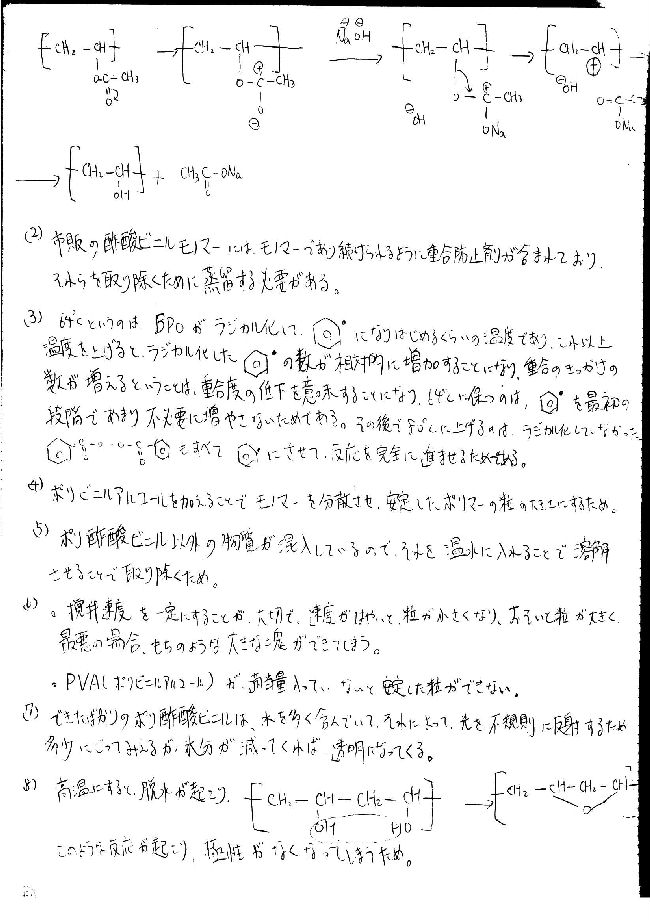 [CH₂-CH] → [CH₂-CH] Na⊕ ⊖OH → [CH₂-CH] → [CH₂-CH⊕] →
→ [CH₂-CH] + CH₃C-ONa
(2) 市販の酢酸ビニルモノマーには、モノマーであり続けられるように重合防止剤が含まれており、
それらを取り除くために蒸留する必要がある。
(3) 64℃というのは BPO がラジカル化して、 • になりはじめるくらいの温度であり、これ以上
温度を上げると、ラジカル化した • の数が相対的に増加することになり、重合のきっかけの
数が増えるということは、重合度の低下を意味することになり、64℃に保つのは、 • を最初の
段階であまり不必要に増やさないためである。その後で ℃に上げるのは、ラジカル化していなかった
をすべて • にさせて、反応を完全に進ませるためである。
(4) ポリビニルアルコールを加えることでモノマーを分散させ、安定したポリマーの粒の大きさにするため。
(5) ポリ酢酸ビニル以外の物質が混入しているので、それを温水に入れることで溶解
させることで取り除くため。
(6) 。撹拌速度を一定にすることが大切で、速度がはやいと、粒が小さくなり、おそいと粒が大きく、
最悪の場合、もちのような大きな塊ができてしまう。
。PVA(ポリビニルアルコール)が適当量入っていないと安定した粒ができない。
(7) できたばかりのポリ酢酸ビニルは、水を多く含んでいて、それによって、光を不規則に反射するため
多少にごってみえるが、水分が減ってくれば透明になってくる。
8) 高温にすると、脱水が起こり、 [CH₂-CH-CH₂-CH] OH HO → [CH₂-CH-CH₂-CH] O
このような反応が起こり、極性がなくなってしまうため。